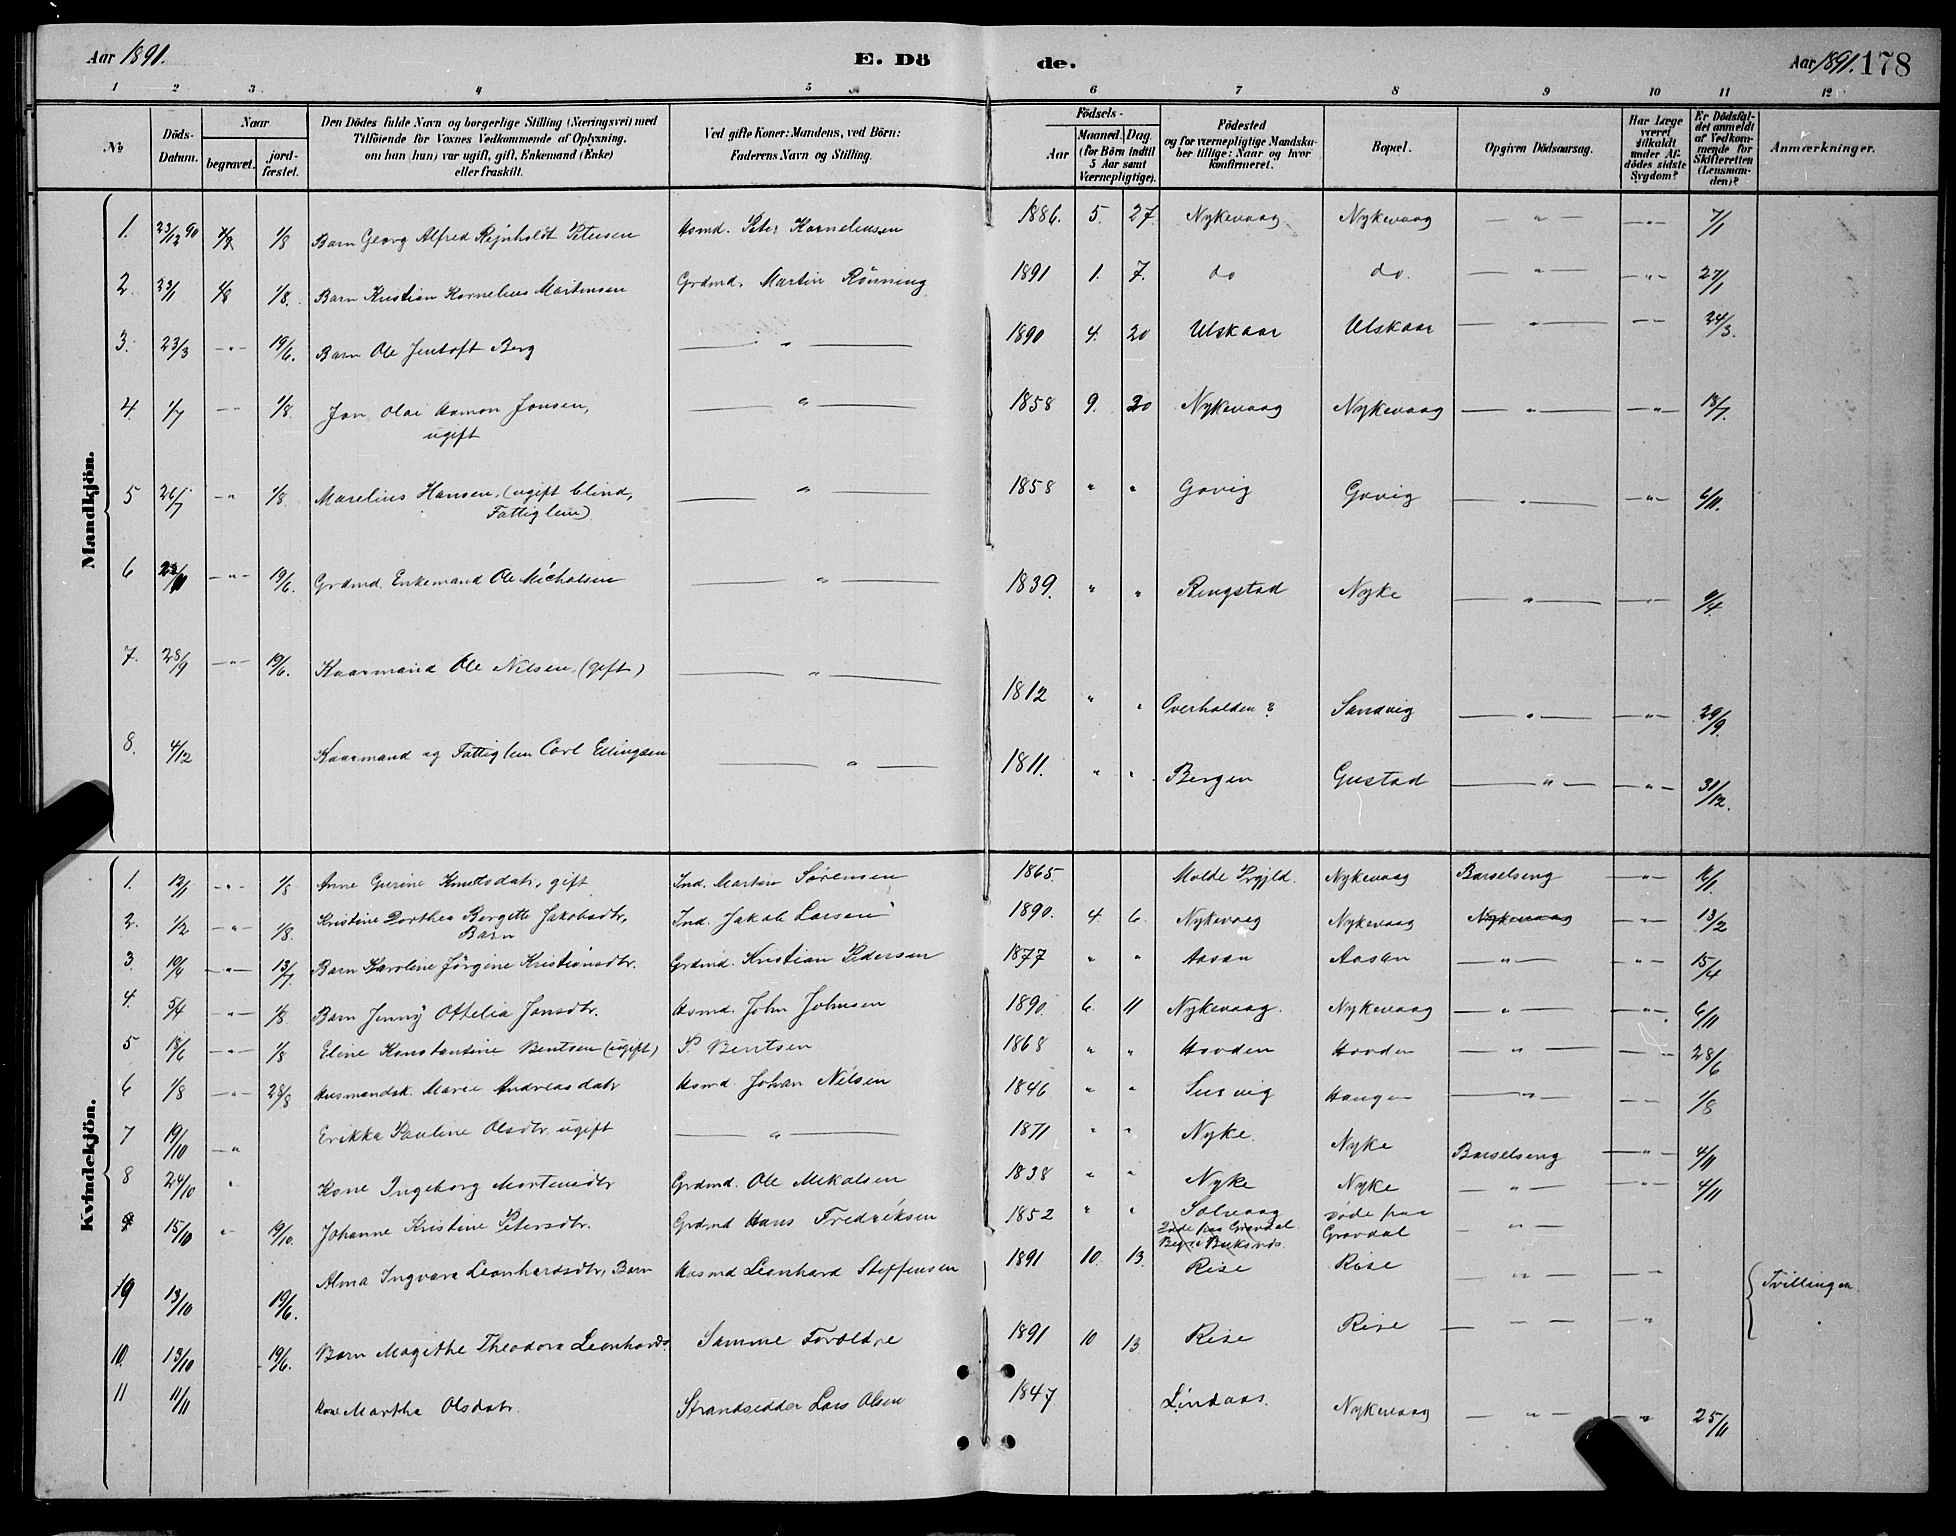 Aar 1891. E. Dö de. Aar 1891. 178
1 2 3 4 5 6 7 8 9 10 11 12
No
Döds-Datum.
Naar
begravet.
jord-fæstet.
Den Dödes fulde Navn og borgerlige Stilling (Næringsvei) med
Tilföiende for Voxnes Vedkommende af Oplysning,
om han (hun) var ugift, gift, Enkemand (Enke)
eller fraskilt.
Ved gifte Koner: Mandens, ved Börn:
Faderens Navn og Stilling.
Födsels-
Aar
Maaned. Dag.
(for Börn indtil
5 Aar samt
Værnepligtige).
Födested
og for værnepligtige Mandska-
ber tillige: Naar og hvor
konfirmeret.
Bopæl.
Opgiven Dödsaarsag.
Har Læge
været
tilkaldt
under Af-
dödes sidste
Sygdom?
Er Dödsfal-
det anmeldt
af Vedkom-
mende for
Skifteretten
(Lensman-
den)?
Anmærkninger.
Mandkjön.
1. 23/12 90 1/8 Barn Georg Alfred Rejnholdt Petersen Husmd. Peter Korneliussen 1886. 5. 27. Nykevaag Nykevaag — " — — " — 7/1
2. 23/1 4/8 1/8. Barn Kristian Kornelius Martinsen Grdmd. Martin Rönning 1891 1. 7. do do. — " — — " — 27/1
3. 23/3 — " — 19/6. Barn Ole Jentoft Berg — " — 1890 4. 20 Ulskaar Ulskaar — " — — " — 24/3.
4. 1/7 — " — 1/8. Jon Olai Aamon Jonsen,
ugift — " — 1858 9. 20 Nykevaag Nykevaag — " — — " — 13/7.
5 26/7 — " — 1/8 Marelius Hansen, (ugift blind,
Fattiglem) — " — 1858 " " Govig Govig — " — — " — 6/11.
6 — " — 19/6. Grdmd. Enkemand Ole Micholsen — " — 1839. " " Ringstad Nyke — " — — " — 9/4.
7. 28/9 — " — 19/6. Kaarmand Ole Nilsen, (gift) — " — 1812 " " Overhalden? Sandvig — " — — " — 29/9.
8. 4/12 Kaarmand og Fattiglem Carl Ellingsen — " — 1811. " " Bergen Gustad — " — — " — 31/12.
Kvindekjön.
1. 12/1 — " — 1/8 Anne Gurine Knudsdatr, gift Ind. Martin Sörensen 1865. Molde Prgjld. Nykevaag Barselseng — " —
2. 1/2 — " — 1/8. Kristine Dorthea Bergitte Jakobsdtr,
Barn Ind. Jakob Larsen 1890. 4. 6. Nykevaag Nykevaag Nykevaag — " — 13/2
3. — " — 13/7 Barn Karoline Jörgine Kristiansdtr. Grdmd. Kristian Pedersen 1877 " " Aasan Aasan — " — — " — 15/4
4. 5/4 — " — 1/8 Barn Jenny Ottelia Jonsdtr. Husmd. John Johnsen 1890. 6. 11 Nykevaag. Nykevaag — " — — " — 6/11
5 18/6 — " — 1/8 Eline Konstantine Bentsen (ugift) P. Bentsen 1868 " " Hovden Hovden — " — — " — 28/6
6 1/8 — " — 28/8 Husmandsk. Maree Andreasdatr Husmd. Johan Nilsen 1846 " " Haugen — " — — " — 1/8
7 19/10 — " Erikka Pauline Olsdtr. ugift — " — 1871 " " Nyke. Nyke Barselseng — " — 4/11
8 24/10 " Kone Ingeborg Mortensdtr Grdmd. Ole Mikalsen 1838 " " Nyke Nyke — " — — " — 4/11
15/10 " 19/10. Johanne Kristine Petersdtr. Grdmd Hans Fredriksen 1852 " " Solvaag
döde paa Gravdal. döde paa
Gravdal — " —
9 13/10 19/6. Alma Ingvara Leonhardsdtr, Barn Husmd Leonhard Steffensen 1891 10. 13. Rise Rise — " — — " — Tvillinger
10. 13/10 19/6. Barn Magithe Theodora Leonhards. Samme Forældre 1891 10 13. Rise Rise — " — "
11 11/11 Kone Martha Olsdatr. Strandsidder Lars Olsen 1847 Lindaas. Nykevaag — " — — " — 25/11